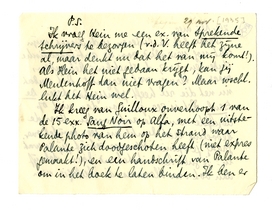 P.S. 29 nov. (1935)
Ik vroeg Hein me een ex. van Sprekende
schrijvers te bezorgen (v.d. V. heeft het zijne
al, maar denkt nu dat het van mij komt!).
Als Hein het niet gedaan krijgt, kan jij
Meulenhoff dan niet vragen? Maar wschl.
lukt het Hein wel.
Ik kreeg van Guilloux onverhoopt 1 van
de 15 exx. Sang Noir op Alfa, met een uitste-
kende photo van hem op het strand waar
Palante zich doodgeschoten heeft (niet expres
gemaakt!), en een handschrift van Palante
om in het boek te laten binden. Ik ben er